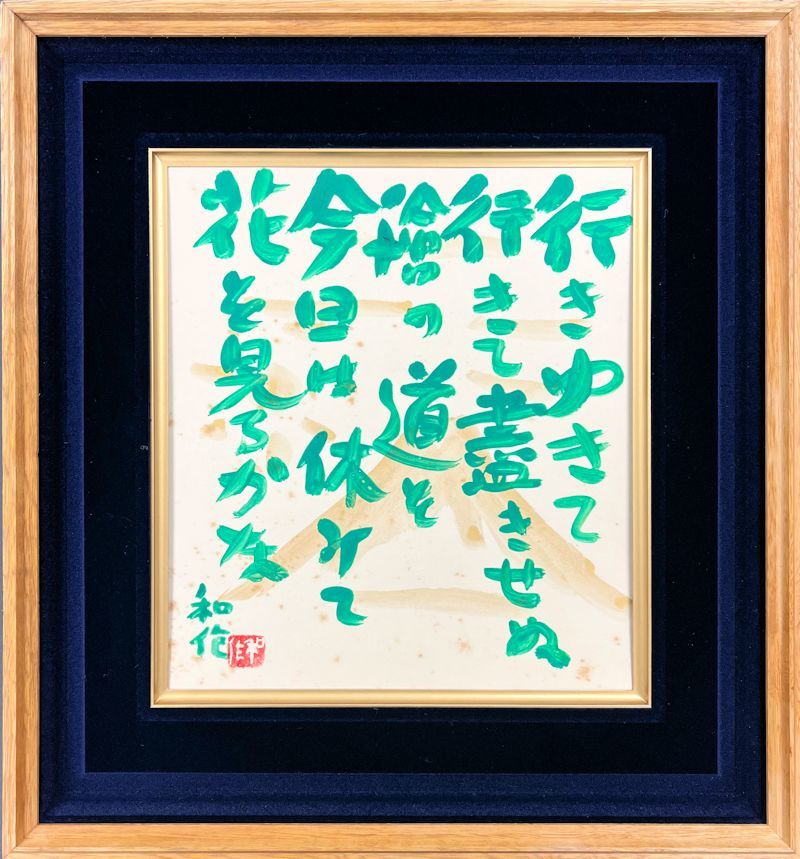 行きゆきて
行きて盡きせぬ
繪の道を
今日は休みて
花を見るかな
和作